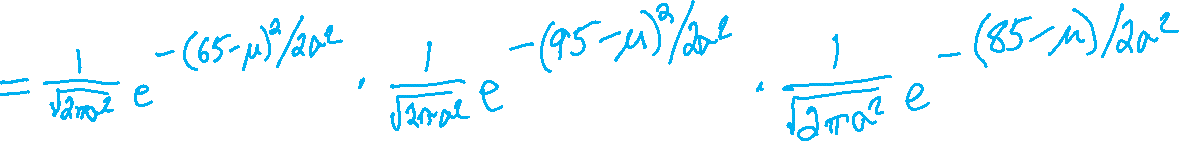 = 1/√(2πa²) e^(-(65-μ)²/2a²) · 1/√(2πa²) e^(-(95-μ)²/2a²) · 1/√(2πa²) e^(-(85-μ)/2a²)